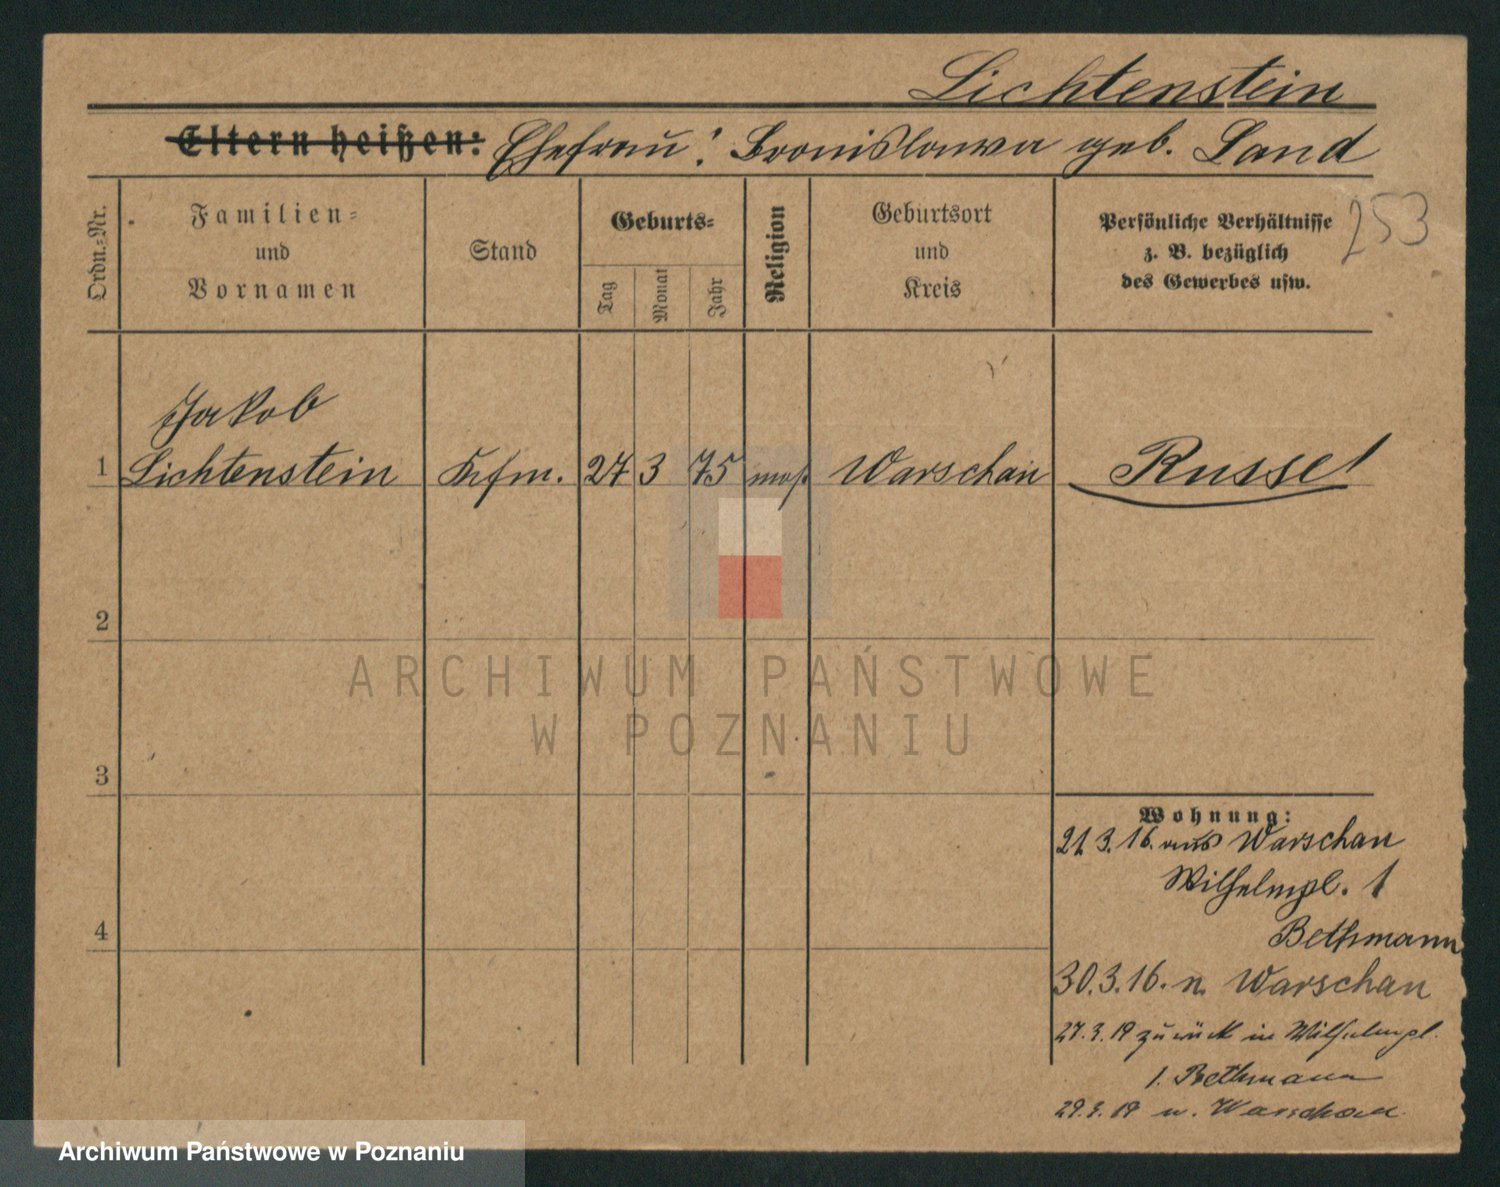 Lichtenstein
Eltern heißen: Ehefrau: Bronislawa geb. Land
Ordn.-Nr.
Familien-
und
Vornamen
Stand
Geburts-
Tag
Monat
Jahr
Religion
Geburtsort
und
Kreis
Persönliche Verhältnisse
z. B. bezüglich
des Gewerbes usw.
253
Jakob
1 Lichtenstein Kfm. 27 3 75 mos. Warschau Russe!
2
ARCHIWUM PAŃSTWOWE
W POZNANIU
3
Wohnung:
21.3.16. aus Warschau
Wilhelmpl. 1
Bethmann
4
30.3.16. n. Warschau
zurück in Wilhelmpl.
1. Bethmann
n. Warschau
Archiwum Państwowe w Poznaniu